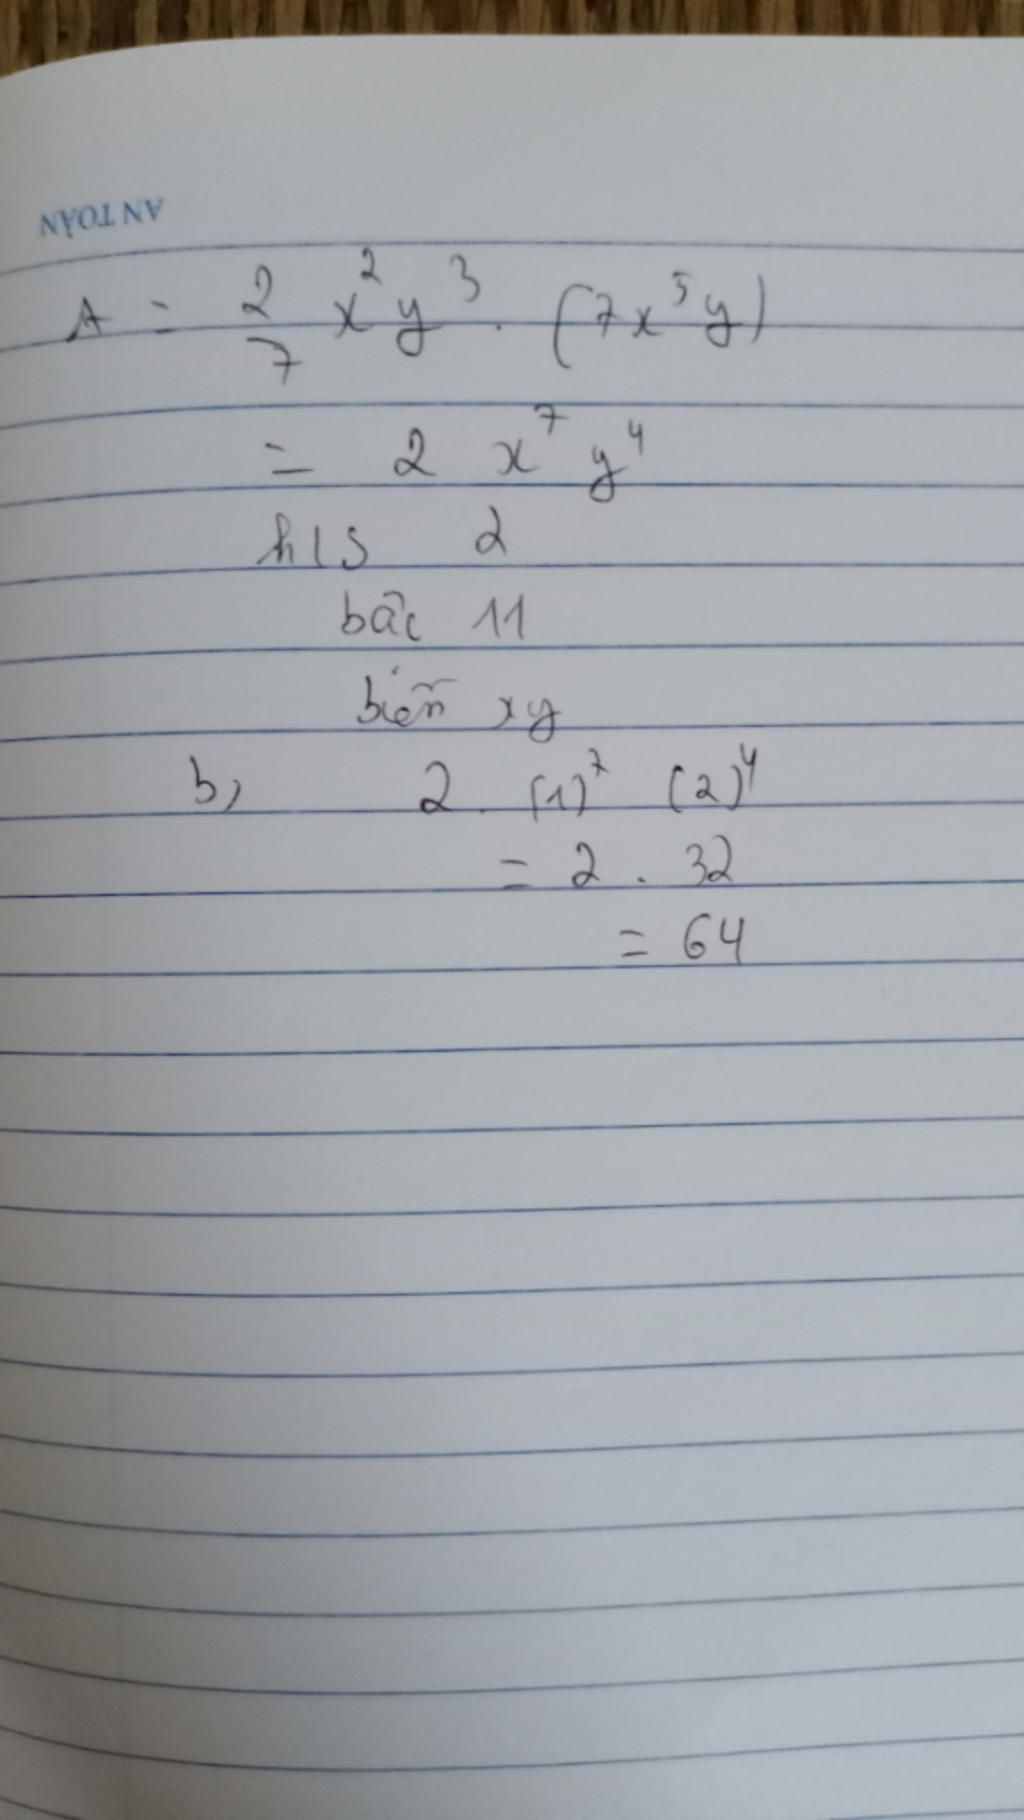 AN TOÀN
A = 2/7 x² y³ . (7x⁵y)
= 2 x⁷ y⁴
hls 2
bậc 11
biến xy
b, 2 . (1)⁷ (2)⁴
= 2 . 32
= 64